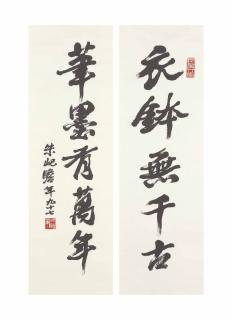 衣鉢無千古
筆墨有萬年
朱屺瞻年九十七